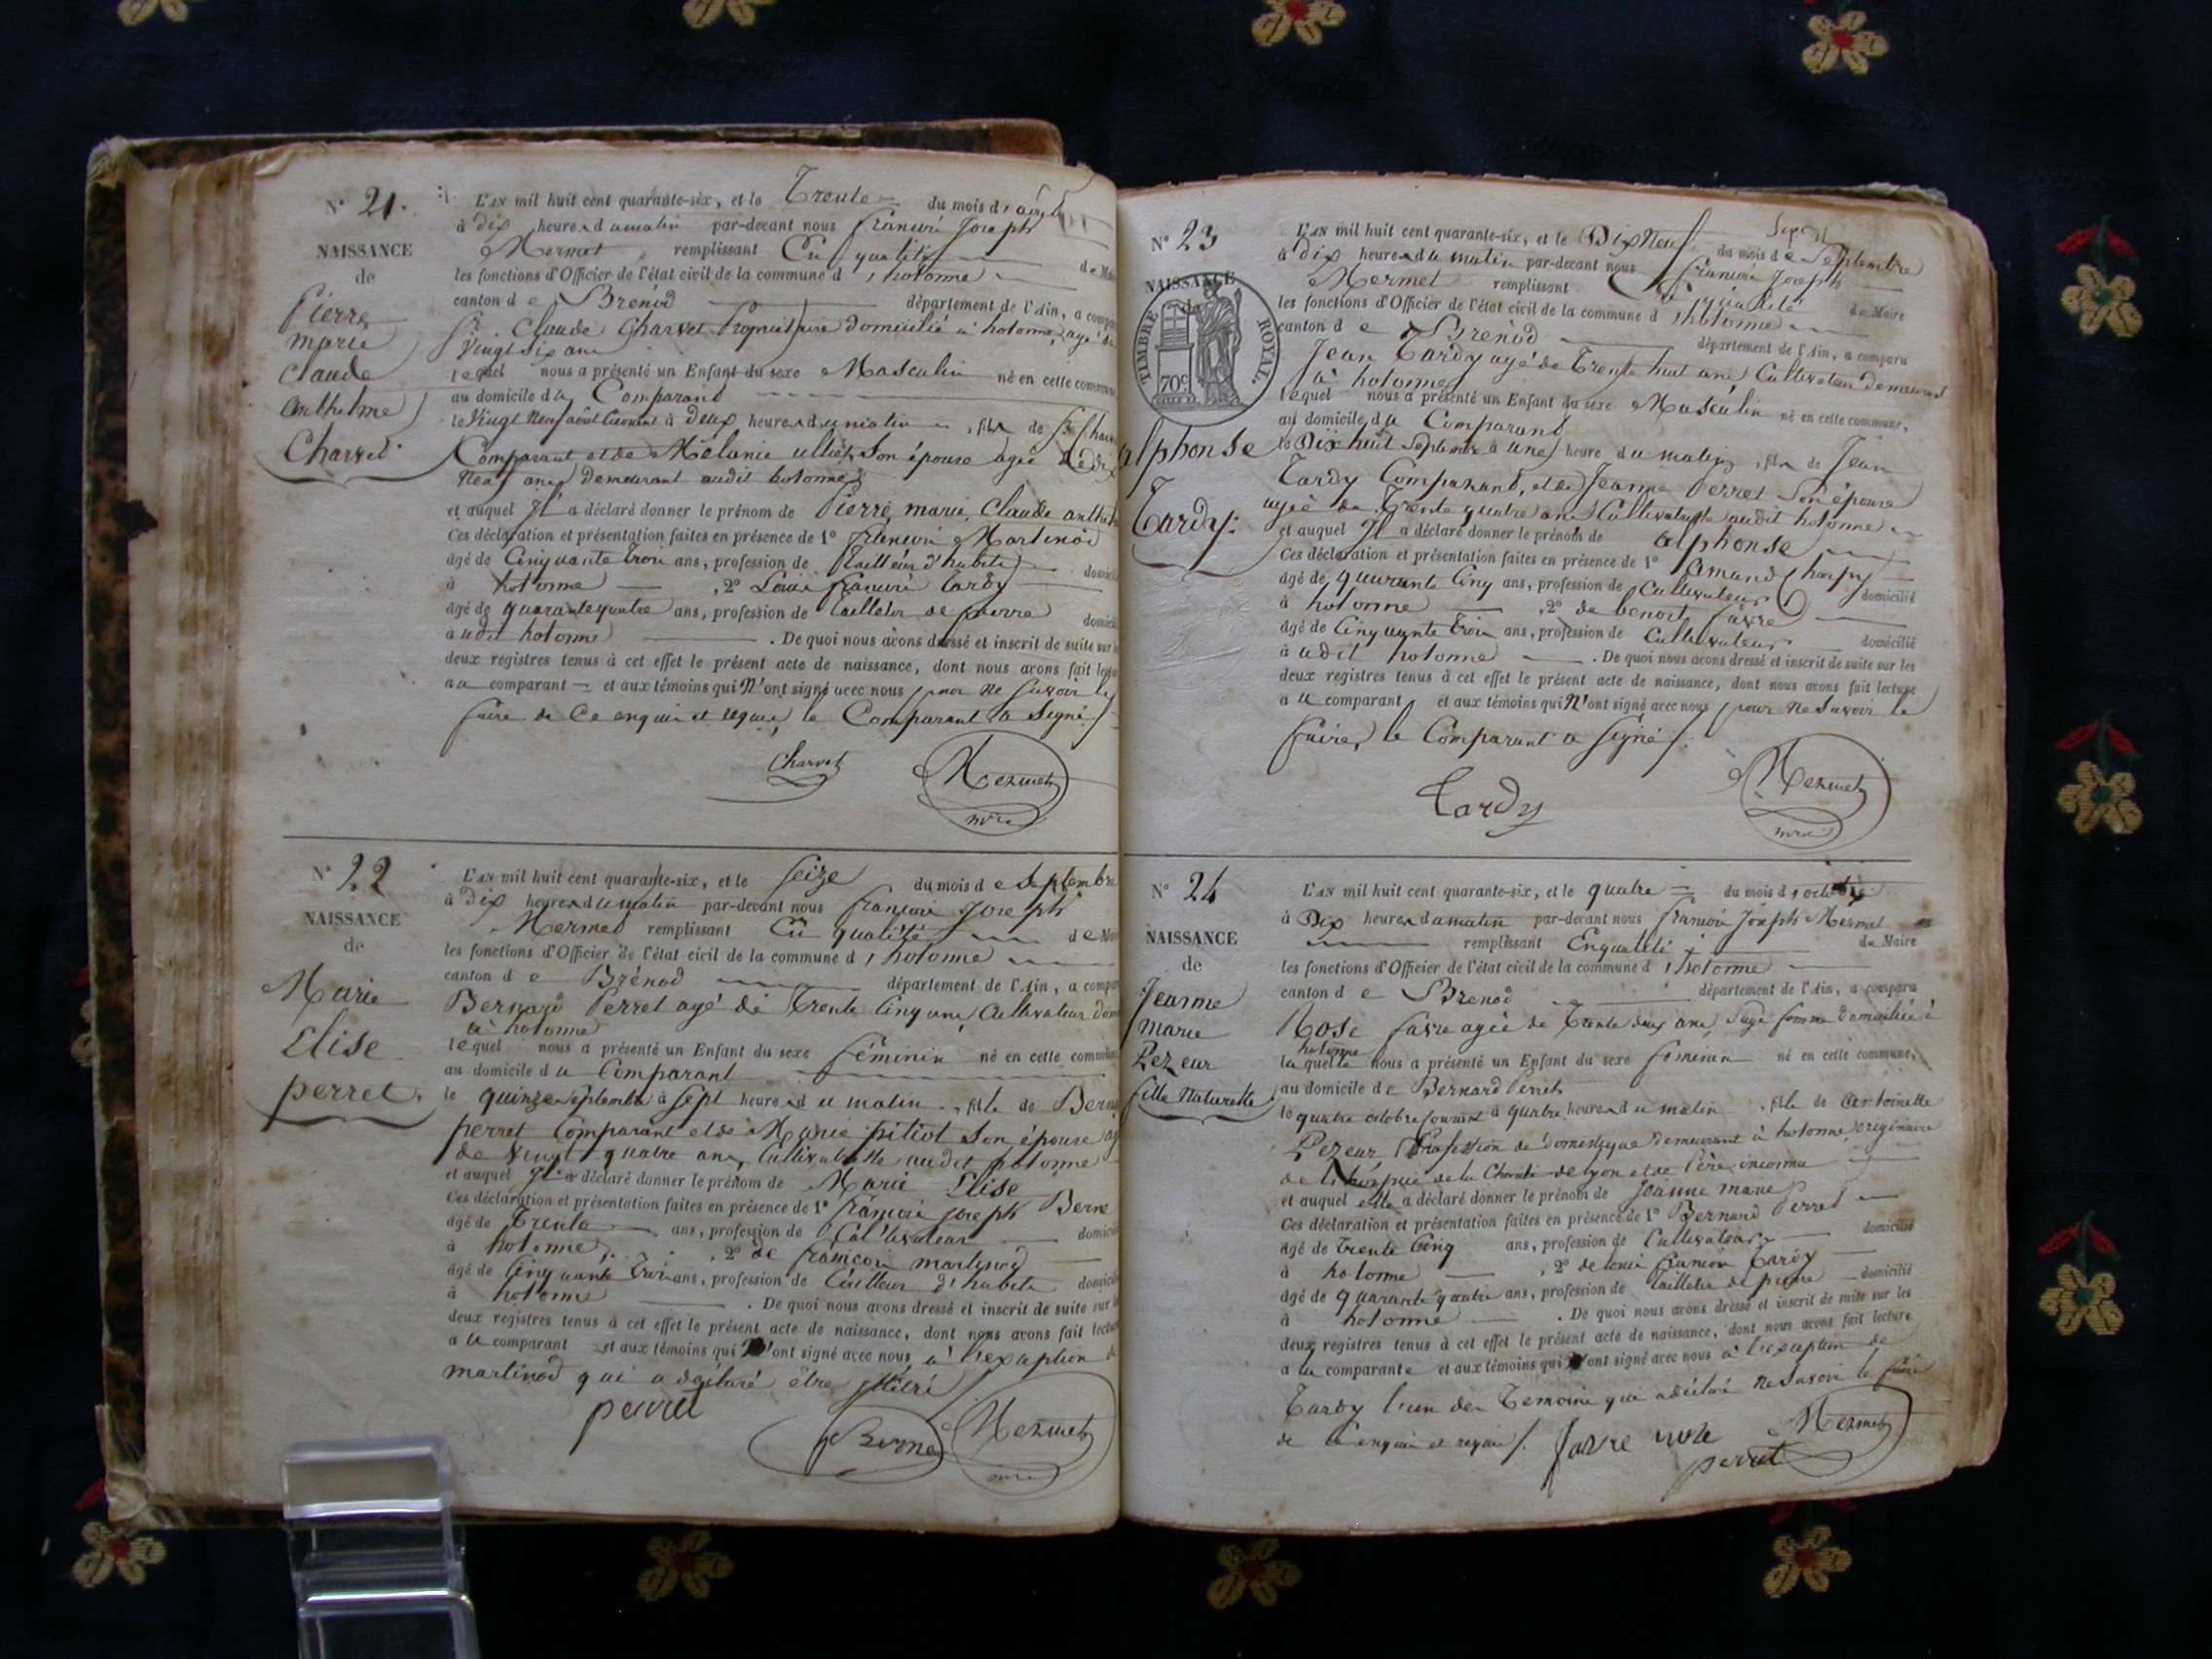 N° 21.
NAISSANCE
de
Pierre
marie
Claude
anthelme
Charvet
L'AN mil huit cent quarante-six, et le Trente du mois d'août
à dix heures du matin par-devant nous françois Joseph
Mermet remplissant En qualité de Maire
les fonctions d'Officier de l'état civil de la commune d'hotonne
canton de Brénod département de l'Ain, a comparu
Sr. Claude Charvet Propriétaire domicilié à hotonne, agé de
Vingt six ans
lequel nous a présenté un Enfant du sexe Masculin né en cette commune
au domicile du Comparant
le Vingt Neuf août Courant à deux heures du matin, fils de Sr Charvet
Comparant et de Mélanie ulliet Son épouse agée de dix
Neuf ans Demeurant audit hotonne
et auquel Il a déclaré donner le prénom de Pierre, marie, Claude anthelme
Ces déclaration et présentation faites en présence de 1° françois Martinod
âgé de Cinquante trois ans, profession de tailleur d'habits domicilié
à hotonne, 2° Louis françois Tardy
âgé de quarante quatre ans, profession de tailleur de pierre domicilié
à udit hotonne. De quoi nous avons dressé et inscrit de suite sur les
deux registres tenus à cet effet le présent acte de naissance, dont nous avons fait lecture
au comparant et aux témoins qui N'ont signé avec nous pour ne savoir le
faire de ce enquis et requis, le Comparant a Signé
Charvet Mermet
N° 22
NAISSANCE
de
Marie
Elise
perret.
L'AN mil huit cent quarante-six, et le seize du mois de Septembre
à dix heures du matin par-devant nous françois Joseph
Mermet remplissant En qualité de Maire
les fonctions d'Officier de l'état civil de la commune d'hotonne
canton de Brénod département de l'Ain, a comparu
Bernard Perret agé de trente Cinq ans Cultivateur
à hotonne
lequel nous a présenté un Enfant du sexe féminin né en cette commune
au domicile du Comparant
le quinze Septembre à sept heures du matin, fille de
perret Comparant et de Marie pitiot Son épouse
de Vingt quatre ans, Cultivatrice audit hotonne
et auquel Il a déclaré donner le prénom de Marie Elise
Ces déclaration et présentation faites en présence de 1° françois joseph Berne
âgé de trente ans, profession de Cultivateur domicilié
à hotonne, 2° de françois martinod
âgé de Cinquante trois ans, profession de tailleur d'habits domicilié
à hotonne. De quoi nous avons dressé et inscrit de suite sur les
deux registres tenus à cet effet le présent acte de naissance, dont nous avons fait lecture
au comparant et aux témoins qui ont signé avec nous à l'exception de
martinod qui a déclaré être illitré
perret
Berne Mermet
N° 23
NAISSANCE
TIMBRE ROYAL.
70c
alphonse
Tardy:
L'AN mil huit cent quarante-six, et le Dix Neuf du mois de Septembre
à dix heures du matin par-devant nous françois Joseph
Mermet remplissant En qualité de Maire
les fonctions d'Officier de l'état civil de la commune d'hotonne
canton de Brénod département de l'Ain, a comparu
Jean Tardy agé de Trente huit ans Cultivateur demeurant
à hotonne
lequel nous a présenté un Enfant du sexe Masculin né en cette commune,
au domicile du Comparant
le Dix huit Septembre à une heure du matin, fils de Jean
Tardy Comparant, et de Jeanne Perret Son épouse
agée de Trente quatre ans Cultivatrice audit hotonne
et auquel Il a déclaré donner le prénom de alphonse
Ces déclaration et présentation faites en présence de 1° amand Charpy
âgé de quarante Cinq ans, profession de Cultivateur domicilié
à hotonne, 2° de benoit favre
âgé de Cinquante trois ans, profession de Cultivateur domicilié
à udit hotonne. De quoi nous avons dressé et inscrit de suite sur les
deux registres tenus à cet effet le présent acte de naissance, dont nous avons fait lecture
au comparant et aux témoins qui N'ont signé avec nous pour ne savoir le
faire, le Comparant a signé
Tardy Mermet
N° 24
NAISSANCE
de
Jeanne
Marie
Lezeur
fille Naturelle
L'AN mil huit cent quarante-six, et le quatre du mois d'octobre
à Dix heures du matin par-devant nous françois Joseph Mermet
remplissant En qualité de Maire
les fonctions d'Officier de l'état civil de la commune d'hotonne
canton de Brenod département de l'Ain, a comparu
Rose favre agée de Trente deux ans, Sage femme domiciliée à
hotonne
laquelle nous a présenté un Enfant du sexe féminin né en cette commune,
au domicile de Bernard Perret
le quatre octobre Courant à quatre heures du matin, fille de antoinette
Lezeur Profession de domestique demeurant à hotonne, originaire
de l'hospice de la Charité de lyon et de Père inconnu
et auquel elle a déclaré donner le prénom de Jeanne marie
Ces déclaration et présentation faites en présence de 1° Bernard Perret
âgé de trente Cinq ans, profession de Cultivateur domicilié
à hotonne, 2° de louis françois Tardy
âgé de quarante quatre ans, profession de tailleur de pierre domicilié
à hotonne. De quoi nous avons dressé et inscrit de suite sur les
deux registres tenus à cet effet le présent acte de naissance, dont nous avons fait lecture
a la comparante et aux témoins qui ont signé avec nous à l'exception de
Tardy l'un des Temoins qui a déclaré ne Savoir le faire
de ce enquis et requis. favre Mermet
perret